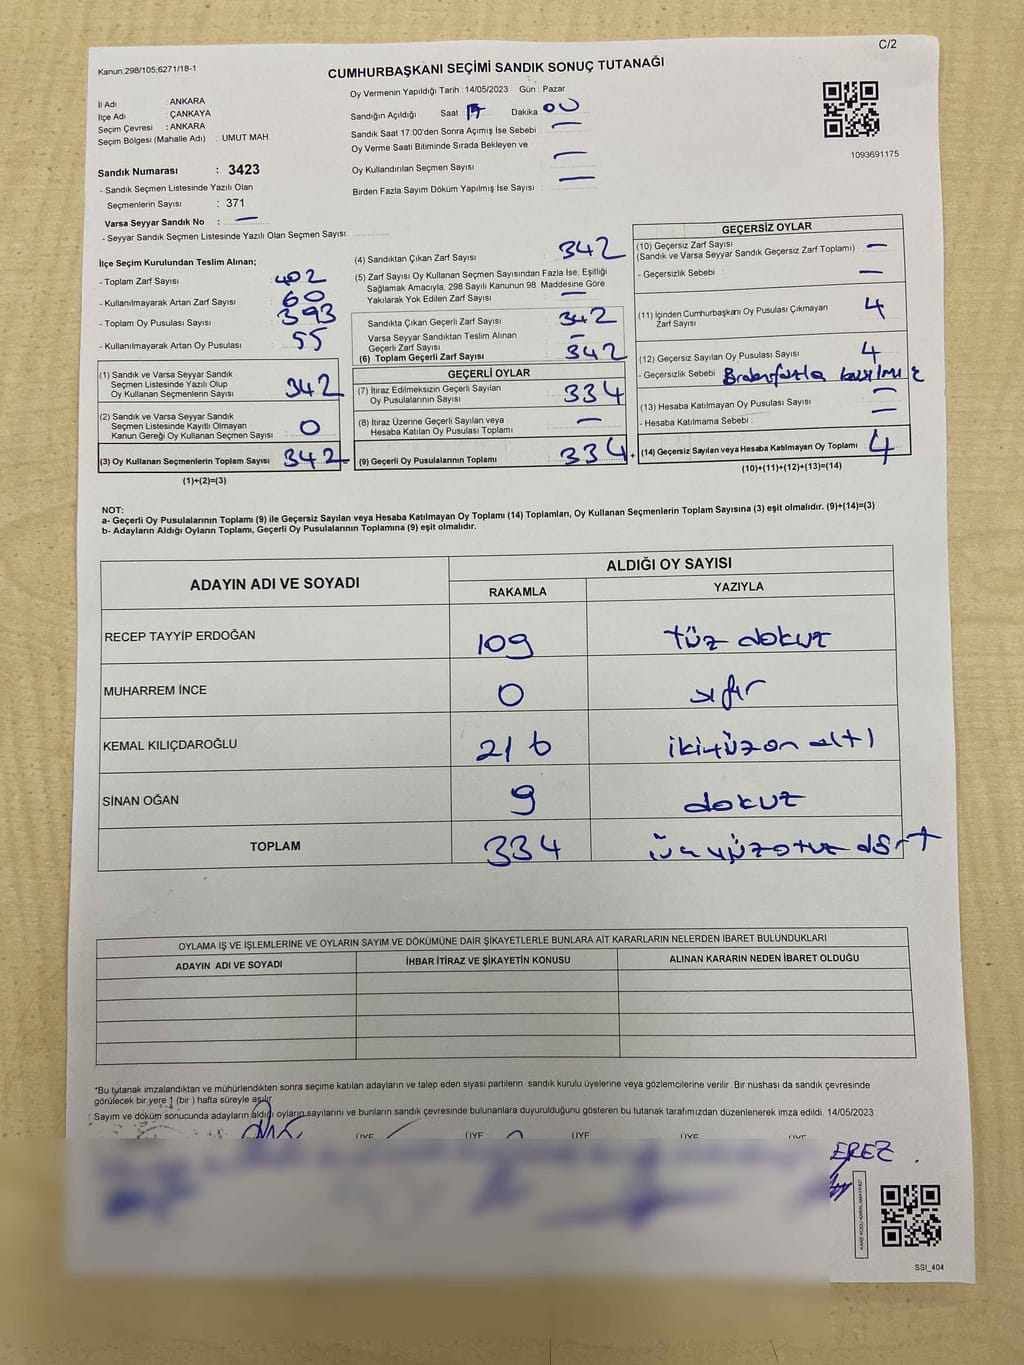 C/2
Kanun:298/105;6271/18-1
CUMHURBAŞKANI SEÇİMİ SANDIK SONUÇ TUTANAĞI
İl Adı : ANKARA
İlçe Adı : ÇANKAYA
Seçim Çevresi : ANKARA
Seçim Bölgesi (Mahalle Adı) : UMUT MAH.
Sandık Numarası : 3423
- Sandık Seçmen Listesinde Yazılı Olan
Seçmenlerin Sayısı : 371
Varsa Seyyar Sandık No : —
- Seyyar Sandık Seçmen Listesinde Yazılı Olan Seçmen Sayısı:
Oy Vermenin Yapıldığı Tarih : 14/05/2023 Gün : Pazar
Sandığın Açıldığı Saat 17 Dakika 00
Sandık Saat 17.00'den Sonra Açımış İse Sebebi : —
Oy Verme Saati Bitiminde Sırada Bekleyen ve
Oy Kullandırılan Seçmen Sayısı —
Birden Fazla Sayım Döküm Yapılmış İse Sayısı : —
1093691175
İlçe Seçim Kurulundan Teslim Alınan;
- Toplam Zarf Sayısı : 402
- Kullanılmayarak Artan Zarf Sayısı : 60
- Toplam Oy Pusulası Sayısı : 393
- Kullanılmayarak Artan Oy Pusulası : 55
(1) Sandık ve Varsa Seyyar Sandık
Seçmen Listesinde Yazılı Olup
Oy Kullanan Seçmenlerin Sayısı : 342
(2) Sandık ve Varsa Seyyar Sandık
Seçmen Listesinde Kayıtlı Olmayan
Kanun Gereği Oy Kullanan Seçmen Sayısı : 0
(3) Oy Kullanan Seçmenlerin Toplam Sayısı : 342
(1)+(2)=(3)
(4) Sandıktan Çıkan Zarf Sayısı : 342
(5) Zarf Sayısı Oy Kullanan Seçmen Sayısından Fazla İse, Eşitliği
Sağlamak Amacıyla, 298 Sayılı Kanunun 98 Maddesine Göre
Yakılarak Yok Edilen Zarf Sayısı : —
Sandıkta Çıkan Geçerli Zarf Sayısı : 342
Varsa Seyyar Sandıktan Teslim Alınan
Geçerli Zarf Sayısı : —
(6) Toplam Geçerli Zarf Sayısı : 342
GEÇERLİ OYLAR
(7) İtiraz Edilmeksizin Geçerli Sayılan
Oy Pusulalarının Sayısı : 334
(8) İtiraz Üzerine Geçerli Sayılan veya
Hesaba Katılan Oy Pusulası Toplamı : —
(9) Geçerli Oy Pusulalarının Toplamı : 334
GEÇERSİZ OYLAR
(10) Geçersiz Zarf Sayısı
(Sandık ve Varsa Seyyar Sandık Geçersiz Zarf Toplamı) : —
- Geçersizlik Sebebi : —
(11) İçinden Cumhurbaşkanı Oy Pusulası Çıkmayan
Zarf Sayısı : 4
(12) Geçersiz Sayılan Oy Pusulası Sayısı : 4
- Geçersizlik Sebebi
(13) Hesaba Katılmayan Oy Pusulası Sayısı : —
- Hesaba Katılmama Sebebi : —
(14) Geçersiz Sayılan veya Hesaba Katılmayan Oy Toplamı : 4
(10)+(11)+(12)+(13)=(14)
NOT:
a- Geçerli Oy Pusulalarının Toplamı (9) ile Geçersiz Sayılan veya Hesaba Katılmayan Oy Toplamı (14) Toplamları, Oy Kullanan Seçmenlerin Toplam Sayısına (3) eşit olmalıdır. (9)+(14)=(3)
b- Adayların Aldığı Oyların Toplamı, Geçerli Oy Pusulalarının Toplamına (9) eşit olmalıdır.
ADAYIN ADI VE SOYADI ALDIĞI OY SAYISI
RAKAMLA YAZIYLA
RECEP TAYYİP ERDOĞAN 109 yüz dokuz
MUHARREM İNCE 0 sıfır
KEMAL KILIÇDAROĞLU 216 ikiyüzon altı
SİNAN OĞAN 9 dokuz
TOPLAM 334 üçyüzotuz dört
OYLAMA İŞ VE İŞLEMLERİNE VE OYLARIN SAYIM VE DÖKÜMÜNE DAİR ŞİKAYETLERLE BUNLARA AİT KARARLARIN NELERDEN İBARET BULUNDUKLARI
ADAYIN ADI VE SOYADI İHBAR İTİRAZ VE ŞİKAYETİN KONUSU ALINAN KARARIN NEDEN İBARET OLDUĞU
*Bu tutanak imzalandıktan ve mühürlendikten sonra seçime katılan adayların ve talep eden siyasi partilerin sandık kurulu üyelerine veya gözlemcilerine verilir. Bir nüshası da sandık çevresinde
görülecek bir yere 1 (bir ) hafta süreyle asılır.
Sayım ve döküm sonucunda adayların aldığı oyların sayılarını ve bunların sandık çevresinde bulunanlara duyurulduğunu gösteren bu tutanak tarafımızdan düzenlenerek imza edildi. 14/05/2023
ÜYE ÜYE ÜYE ÜYE ÜYE
EREZ
SSI_404